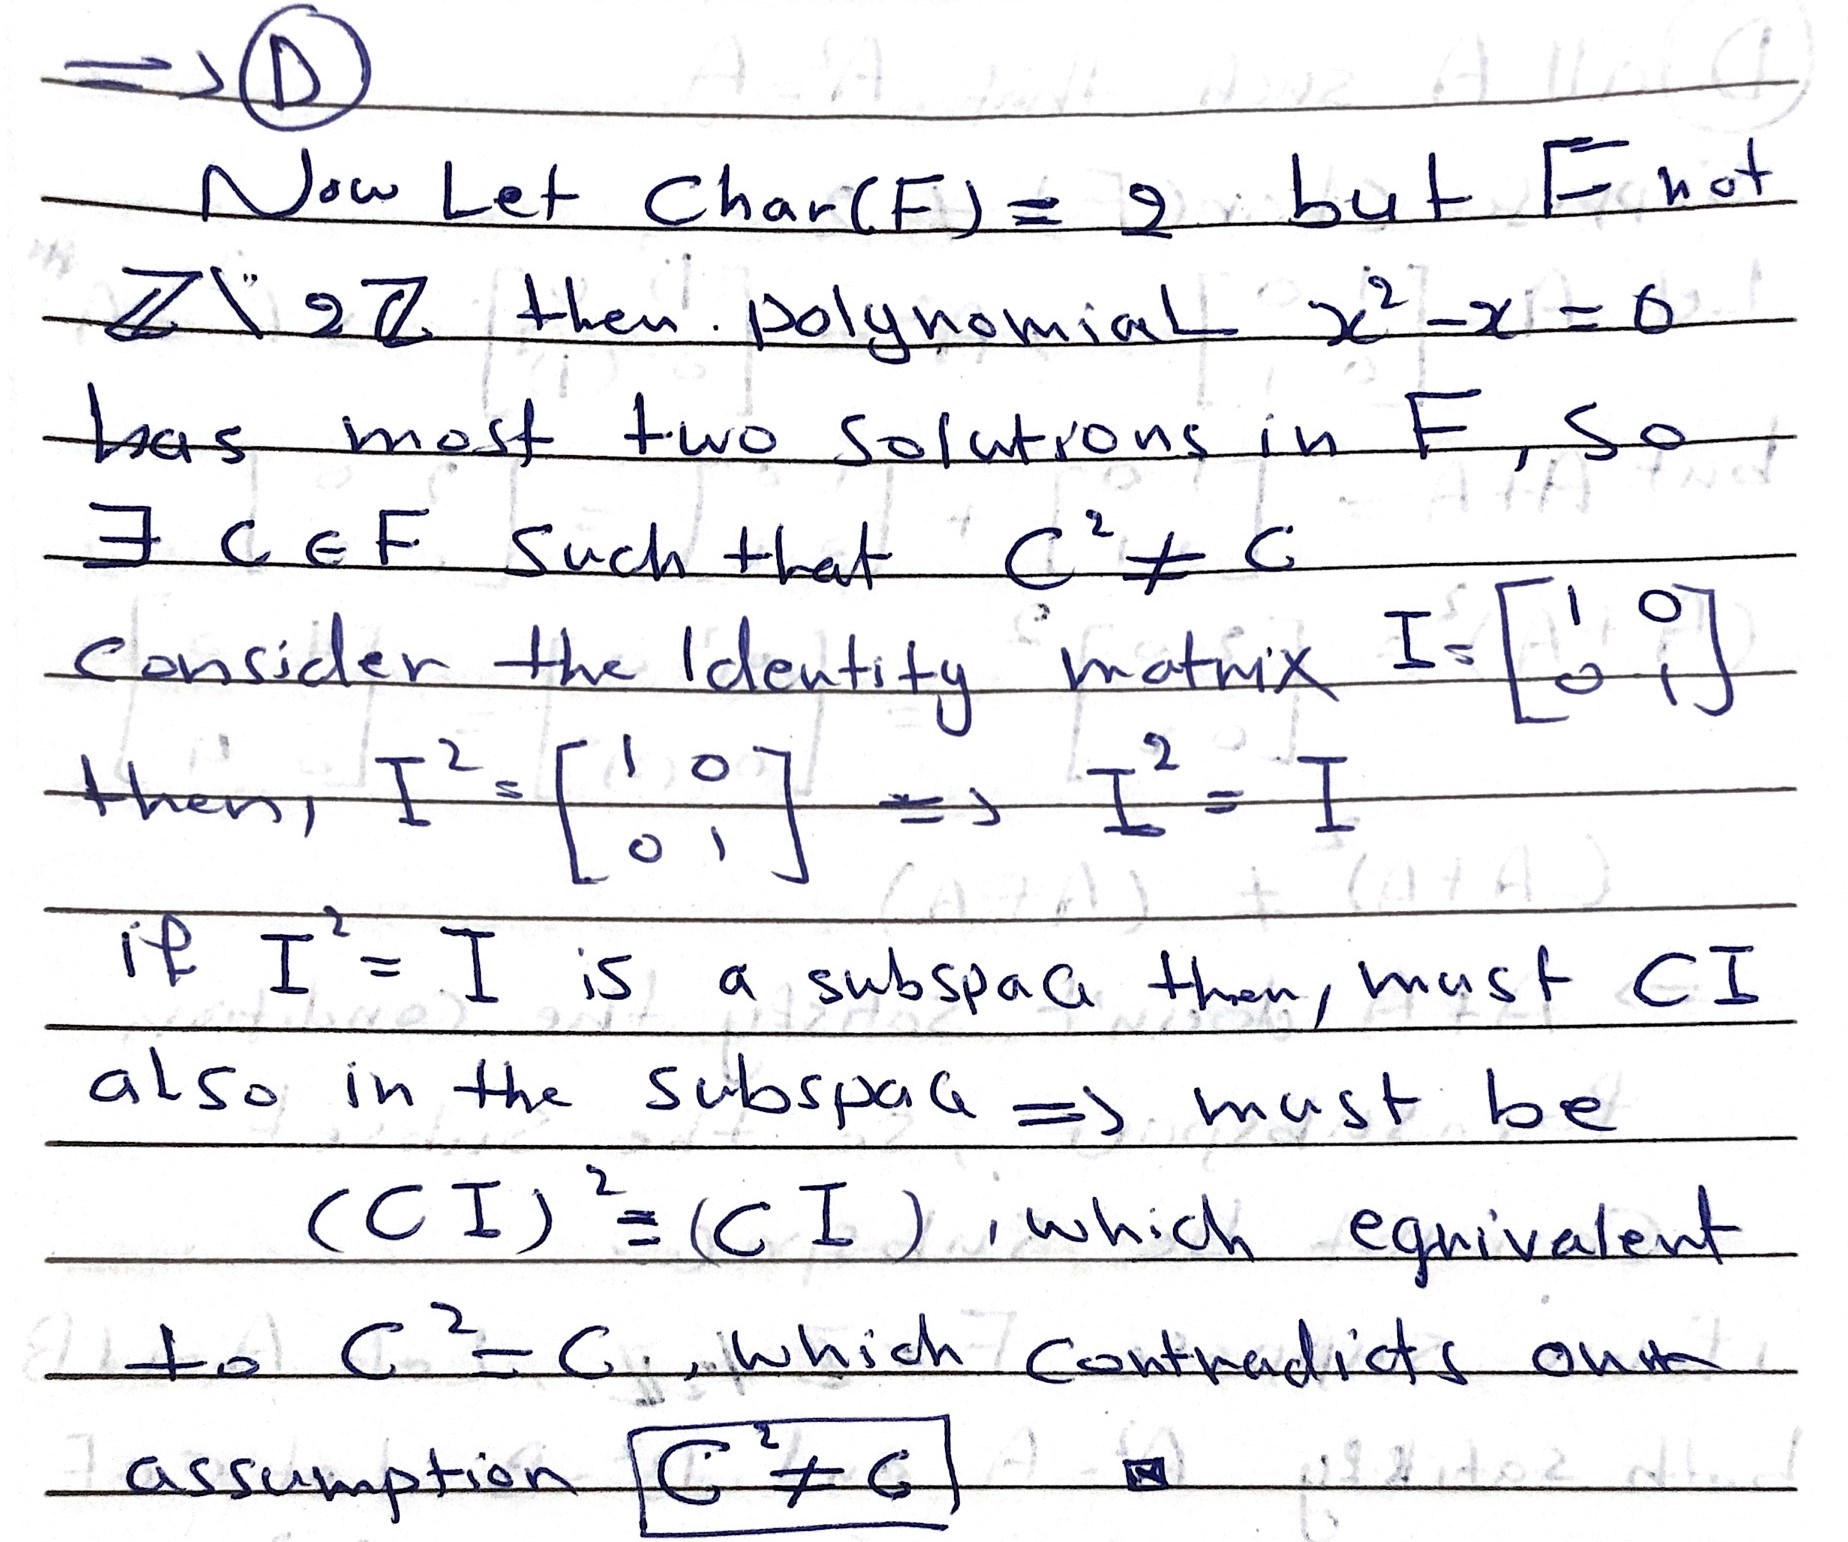 => D
Now Let Char(F) = 2 but F not
ℤ\2ℤ then polynomial x² - x = 0
has most two solutions in F, so
∃ C ∈ F such that C² ≠ C
consider the Identity matrix I = [1 0 0 1]
then, I² = [1 0 0 1] => I² = I
if I² = I is a subspace then, must CI
also in the subspace => must be
(CI)² = (CI), which equivalent
to C² = C, which contradicts our
assumption C² ≠ C